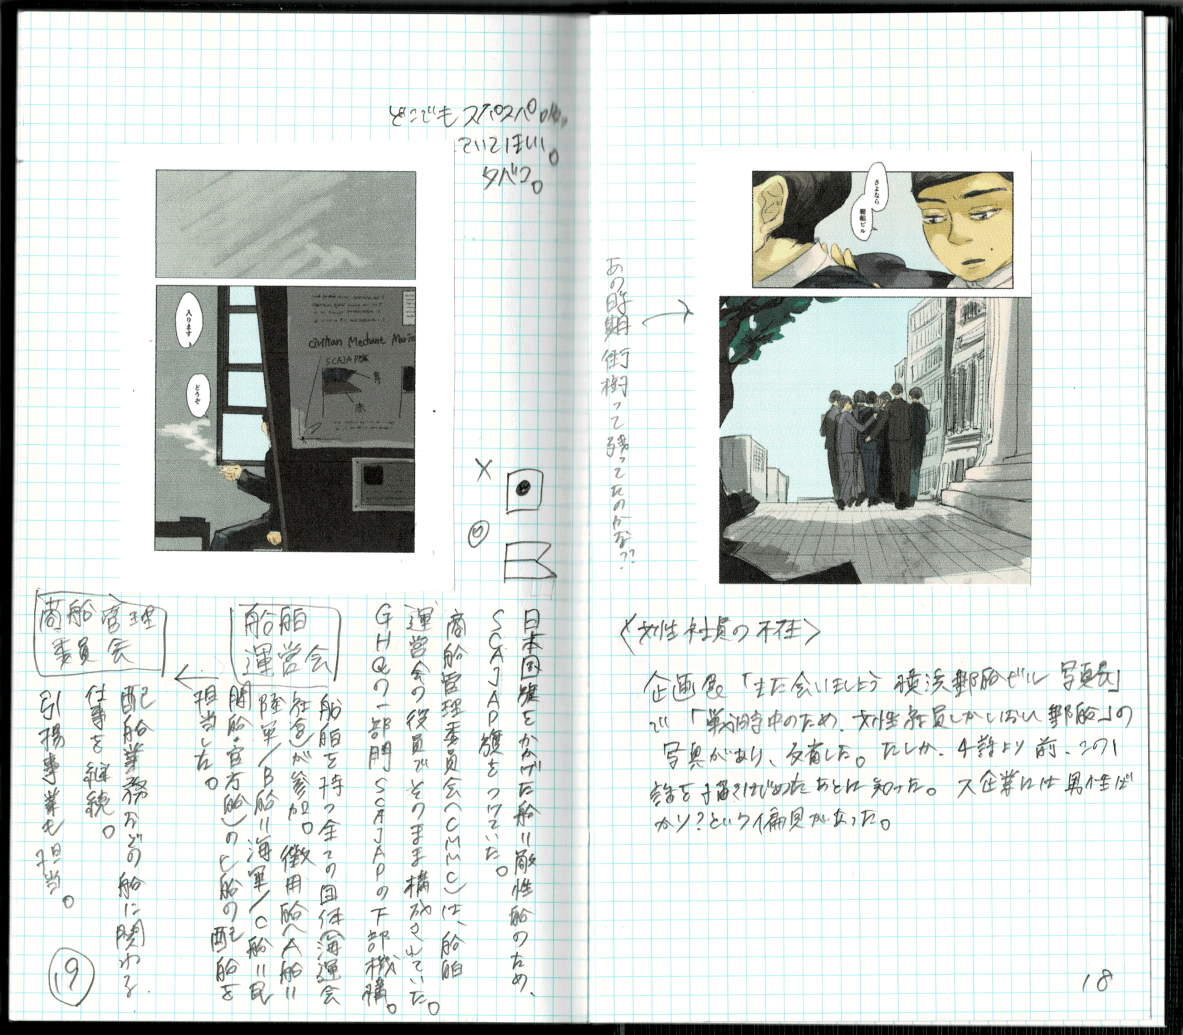 さよなら
郵船ビル
あの時期 街樹って残ってたのかな??
〈女性社員の不在〉
企画展「また会いましょう 横浜郵船ビル 写真展」
で「戦時中のため、女性社員しかいない郵船」の
写真があり、反省した。たしか、4話より前、この
話を描きはじめたあとに知った。大企業には男性ば
かり?という偏見があった。
18
どこでもスパスパ
ていてほしい。
タバコ。
入ります
どうぞ
civilian Merchant Marine
SCAJAP旗
青
赤
×
◎
日本国旗をかかげた船=敵性船のため、
SCAJAP旗をつけていた。
商船管理委員会(CMMC)は、船舶
運営会の役員でそのまま構成されていた。
GHQの一部門SCAJAPの下部機構。
船舶
運営会
船舶を持つ全ての団体(海運会
社含)が参加。徴用船(A船=
陸軍/B船=海軍/C船=民
間船・官方船)のC船の配船を
担当した。
商船管理
委員会
配船業務などの船に関わる
仕事を継続。
引揚事業も担当。
19